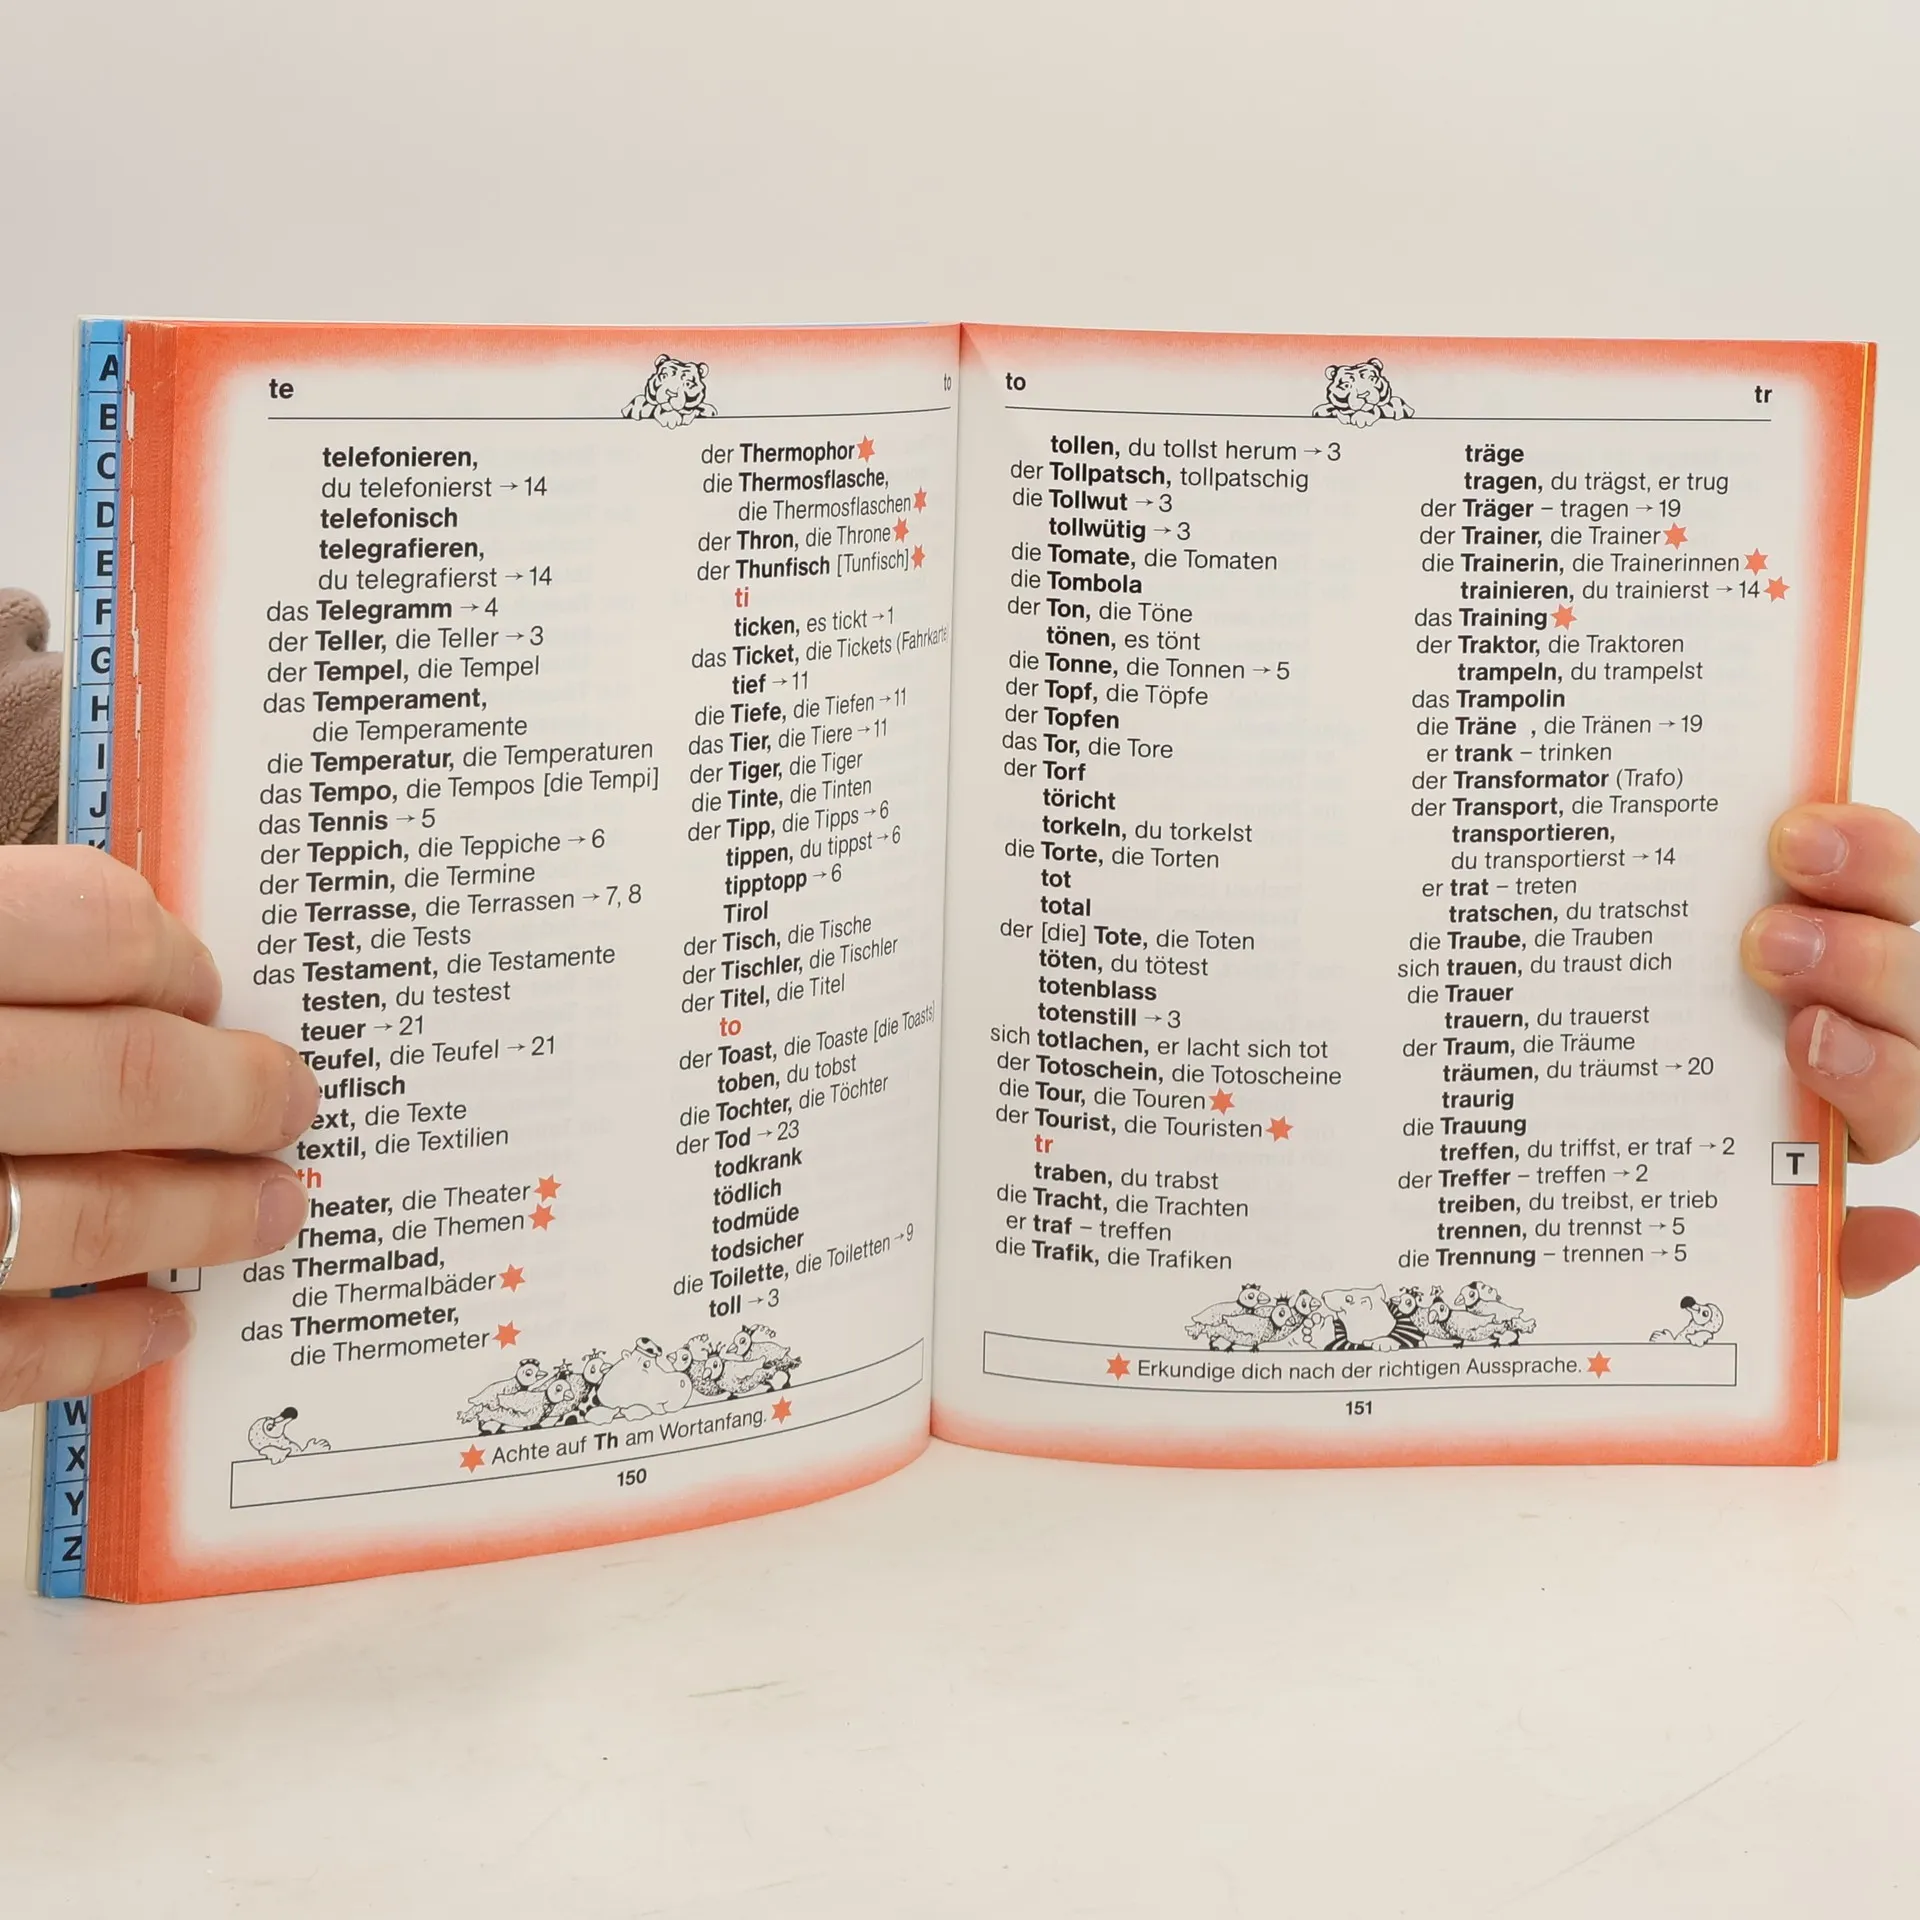 A
B
C
D
E
F
G
H
I
J
W
X
Y
Z
te
to
telefonieren,
du telefonierst → 14
telefonisch
telegrafieren,
du telegrafierst → 14
das Telegramm → 4
der Teller, die Teller → 3
der Tempel, die Tempel
das Temperament,
die Temperamente
die Temperatur, die Temperaturen
das Tempo, die Tempos [die Tempi]
das Tennis → 5
der Teppich, die Teppiche → 6
der Termin, die Termine
die Terrasse, die Terrassen → 7, 8
der Test, die Tests
das Testament, die Testamente
testen, du testest
teuer → 21
Teufel, die Teufel → 21
euflisch
ext, die Texte
textil, die Textilien
th
heater, die Theater
Thema, die Themen
das Thermalbad,
die Thermalbäder
das Thermometer,
die Thermometer
der Thermophor
die Thermosflasche,
die Thermosflaschen
der Thron, die Throne
der Thunfisch [Tunfisch]
ti
ticken, es tickt → 1
das Ticket, die Tickets (Fahrkarte
tief → 11
die Tiefe, die Tiefen → 11
das Tier, die Tiere → 11
der Tiger, die Tiger
die Tinte, die Tinten
der Tipp, die Tipps → 6
tippen, du tippst → 6
tipptopp → 6
Tirol
der Tisch, die Tische
der Tischler, die Tischler
der Titel, die Titel
to
der Toast, die Toaste [die Toasts]
toben, du tobst
die Tochter, die Töchter
der Tod → 23
todkrank
tödlich
todmüde
todsicher
die Toilette, die Toiletten → 9
toll → 3
Achte auf Th am Wortanfang.
150
to
tr
tollen, du tollst herum → 3
der Tollpatsch, tollpatschig
die Tollwut → 3
tollwütig → 3
die Tomate, die Tomaten
die Tombola
der Ton, die Töne
tönen, es tönt
die Tonne, die Tonnen → 5
der Topf, die Töpfe
der Topfen
das Tor, die Tore
der Torf
töricht
torkeln, du torkelst
die Torte, die Torten
tot
total
der [die] Tote, die Toten
töten, du tötest
totenblass
totenstill → 3
sich totlachen, er lacht sich tot
der Totoschein, die Totoscheine
die Tour, die Touren
der Tourist, die Touristen
tr
traben, du trabst
die Tracht, die Trachten
er traf – treffen
die Trafik, die Trafiken
träge
tragen, du trägst, er trug
der Träger – tragen → 19
der Trainer, die Trainer
die Trainerin, die Trainerinnen
trainieren, du trainierst → 14
das Training
der Traktor, die Traktoren
trampeln, du trampelst
das Trampolin
die Träne , die Tränen → 19
er trank – trinken
der Transformator (Trafo)
der Transport, die Transporte
transportieren,
du transportierst → 14
er trat – treten
tratschen, du tratschst
die Traube, die Trauben
sich trauen, du traust dich
die Trauer
trauern, du trauerst
der Traum, die Träume
träumen, du träumst → 20
traurig
die Trauung
treffen, du triffst, er traf → 2
der Treffer – treffen → 2
treiben, du treibst, er trieb
trennen, du trennst → 5
die Trennung – trennen → 5
T
Erkundige dich nach der richtigen Aussprache.
151